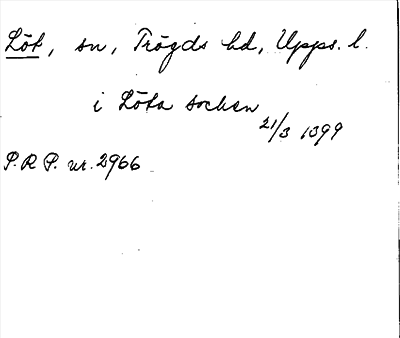 Löt, sn, Trögds hd, Upps. l.
i Löta socken
21/3 1399
P.R.P. nr. 2966